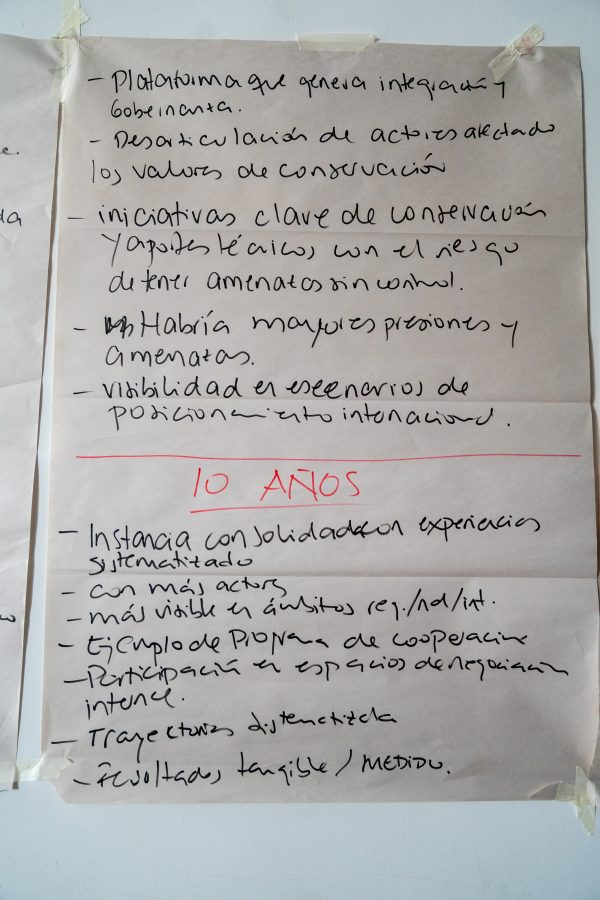 - Plataforma que genera integración y
Gobernanza.
- Desarticulación de actores afectado
los valores de conservación
- iniciativas clave de conservación
y aportes técnicos con el riesgo
de tener amenazas sin control.
- Habría mayores presiones y
amenazas.
- visibilidad en escenarios de
posicionamiento internacional.
10 AÑOS
- Instancia consolidada con experiencias
sistematizado
- con más actores
- más visible en ámbitos reg./nal/int.
- Ejemplo de Programa de cooperación
- Participación en espacios de negociación
- Trayectorias sistematizada
- Resultados tangible / MEDIDO.